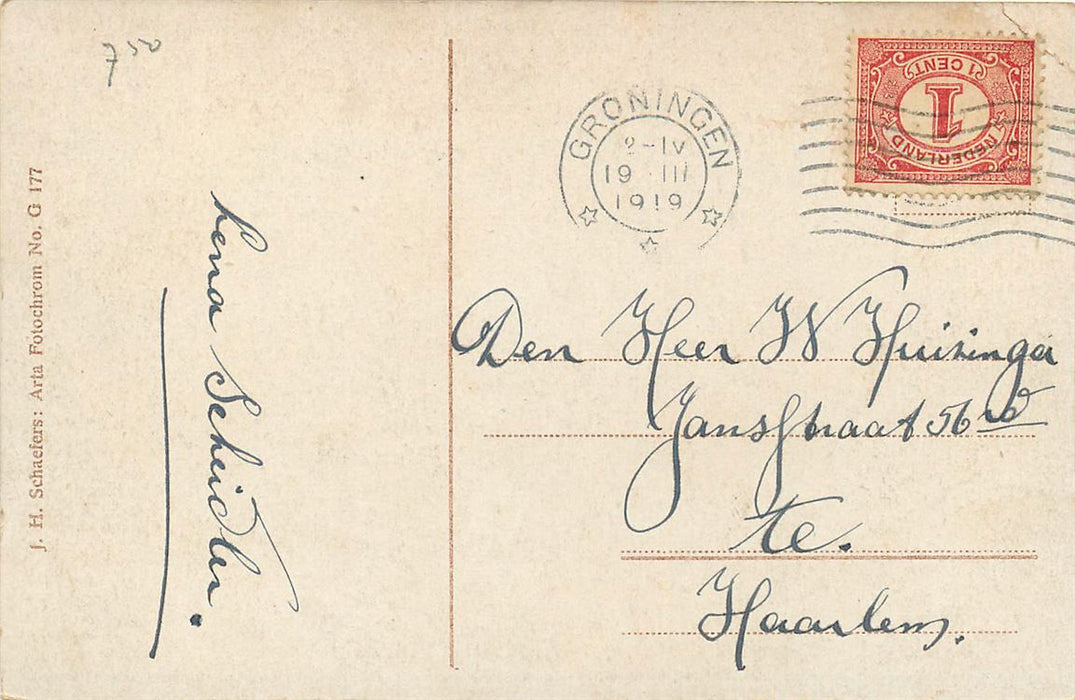 7 50
J. H. Schaefers: Arta Fotochrom No. G 177
Lena Scheidler.
GRONINGEN
2-IV
19 III
1919
1 CENT
1
NEDERLAND
Den Heer W Huizinga
Jansstraat 56 rd
te.
Haarlem.